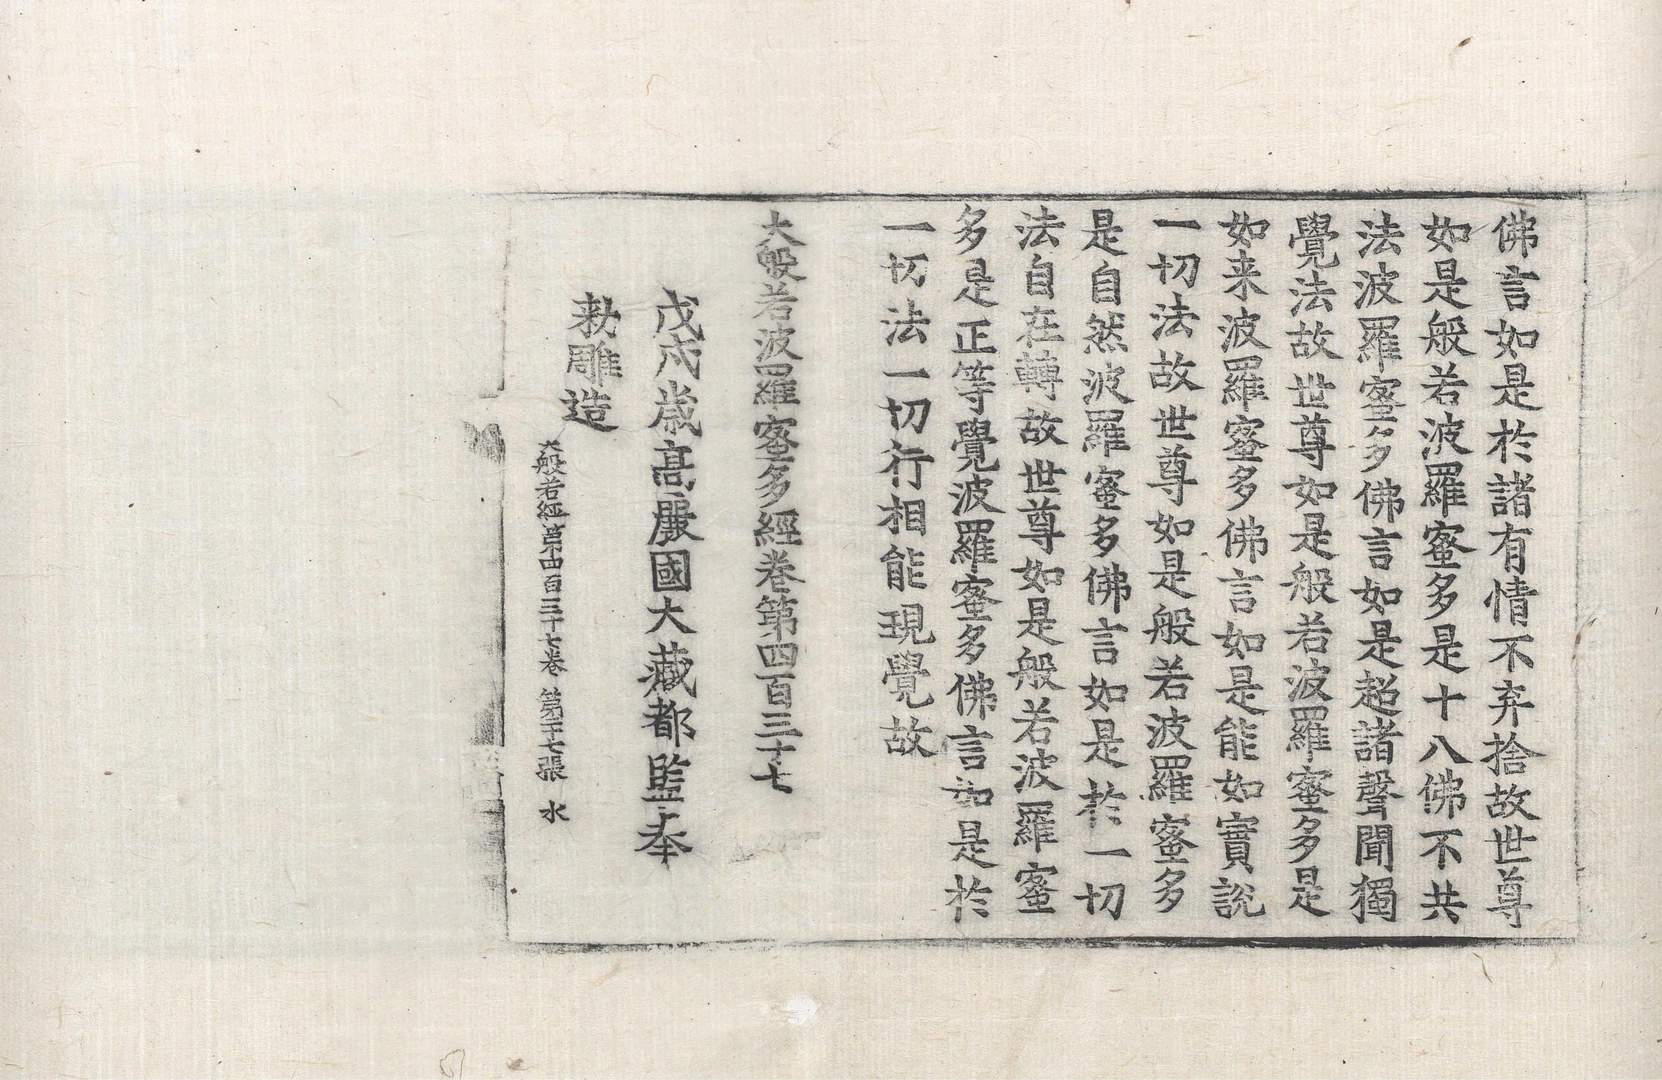 佛言如是於諸有情不弃捨故世尊
如是般若波羅蜜多是十八佛不共
法波羅蜜多佛言如是超諸聲聞獨
覺法故世尊如是般若波羅蜜多是
如来波羅蜜多佛言如是能如實說
一切法故世尊如是般若波羅蜜多
是自然波羅蜜多佛言如是於一切
法自在轉故世尊如是般若波羅蜜
多是正等覺波羅蜜多佛言如是於
一切法一切行相能現覺故
大般若波羅蜜多經卷第四百三十七
戊戌歲高麗國大藏都監奉
勑雕造
大般若經第四百三十七卷 第二十七張 水